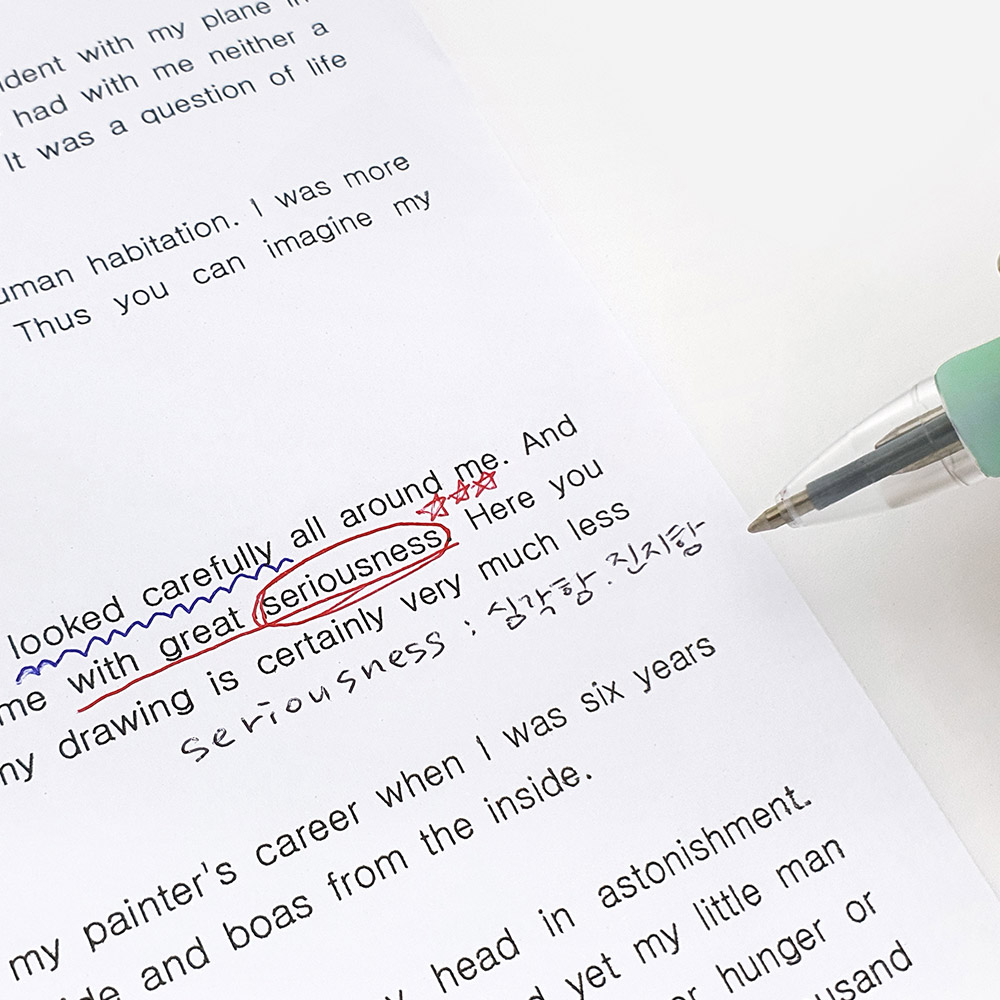 ident with my plane in
had with me neither a
It was a question of life
uman habitation. I was more
Thus you can imagine my
looked carefully all around me. And
me with great seriousness. Here you
my drawing is certainly very much less
seriousness : 심각함. 진지함
my painter's career when I was six years
and boas from the inside.
head in astonishment.
yet my little man
hunger or
usand